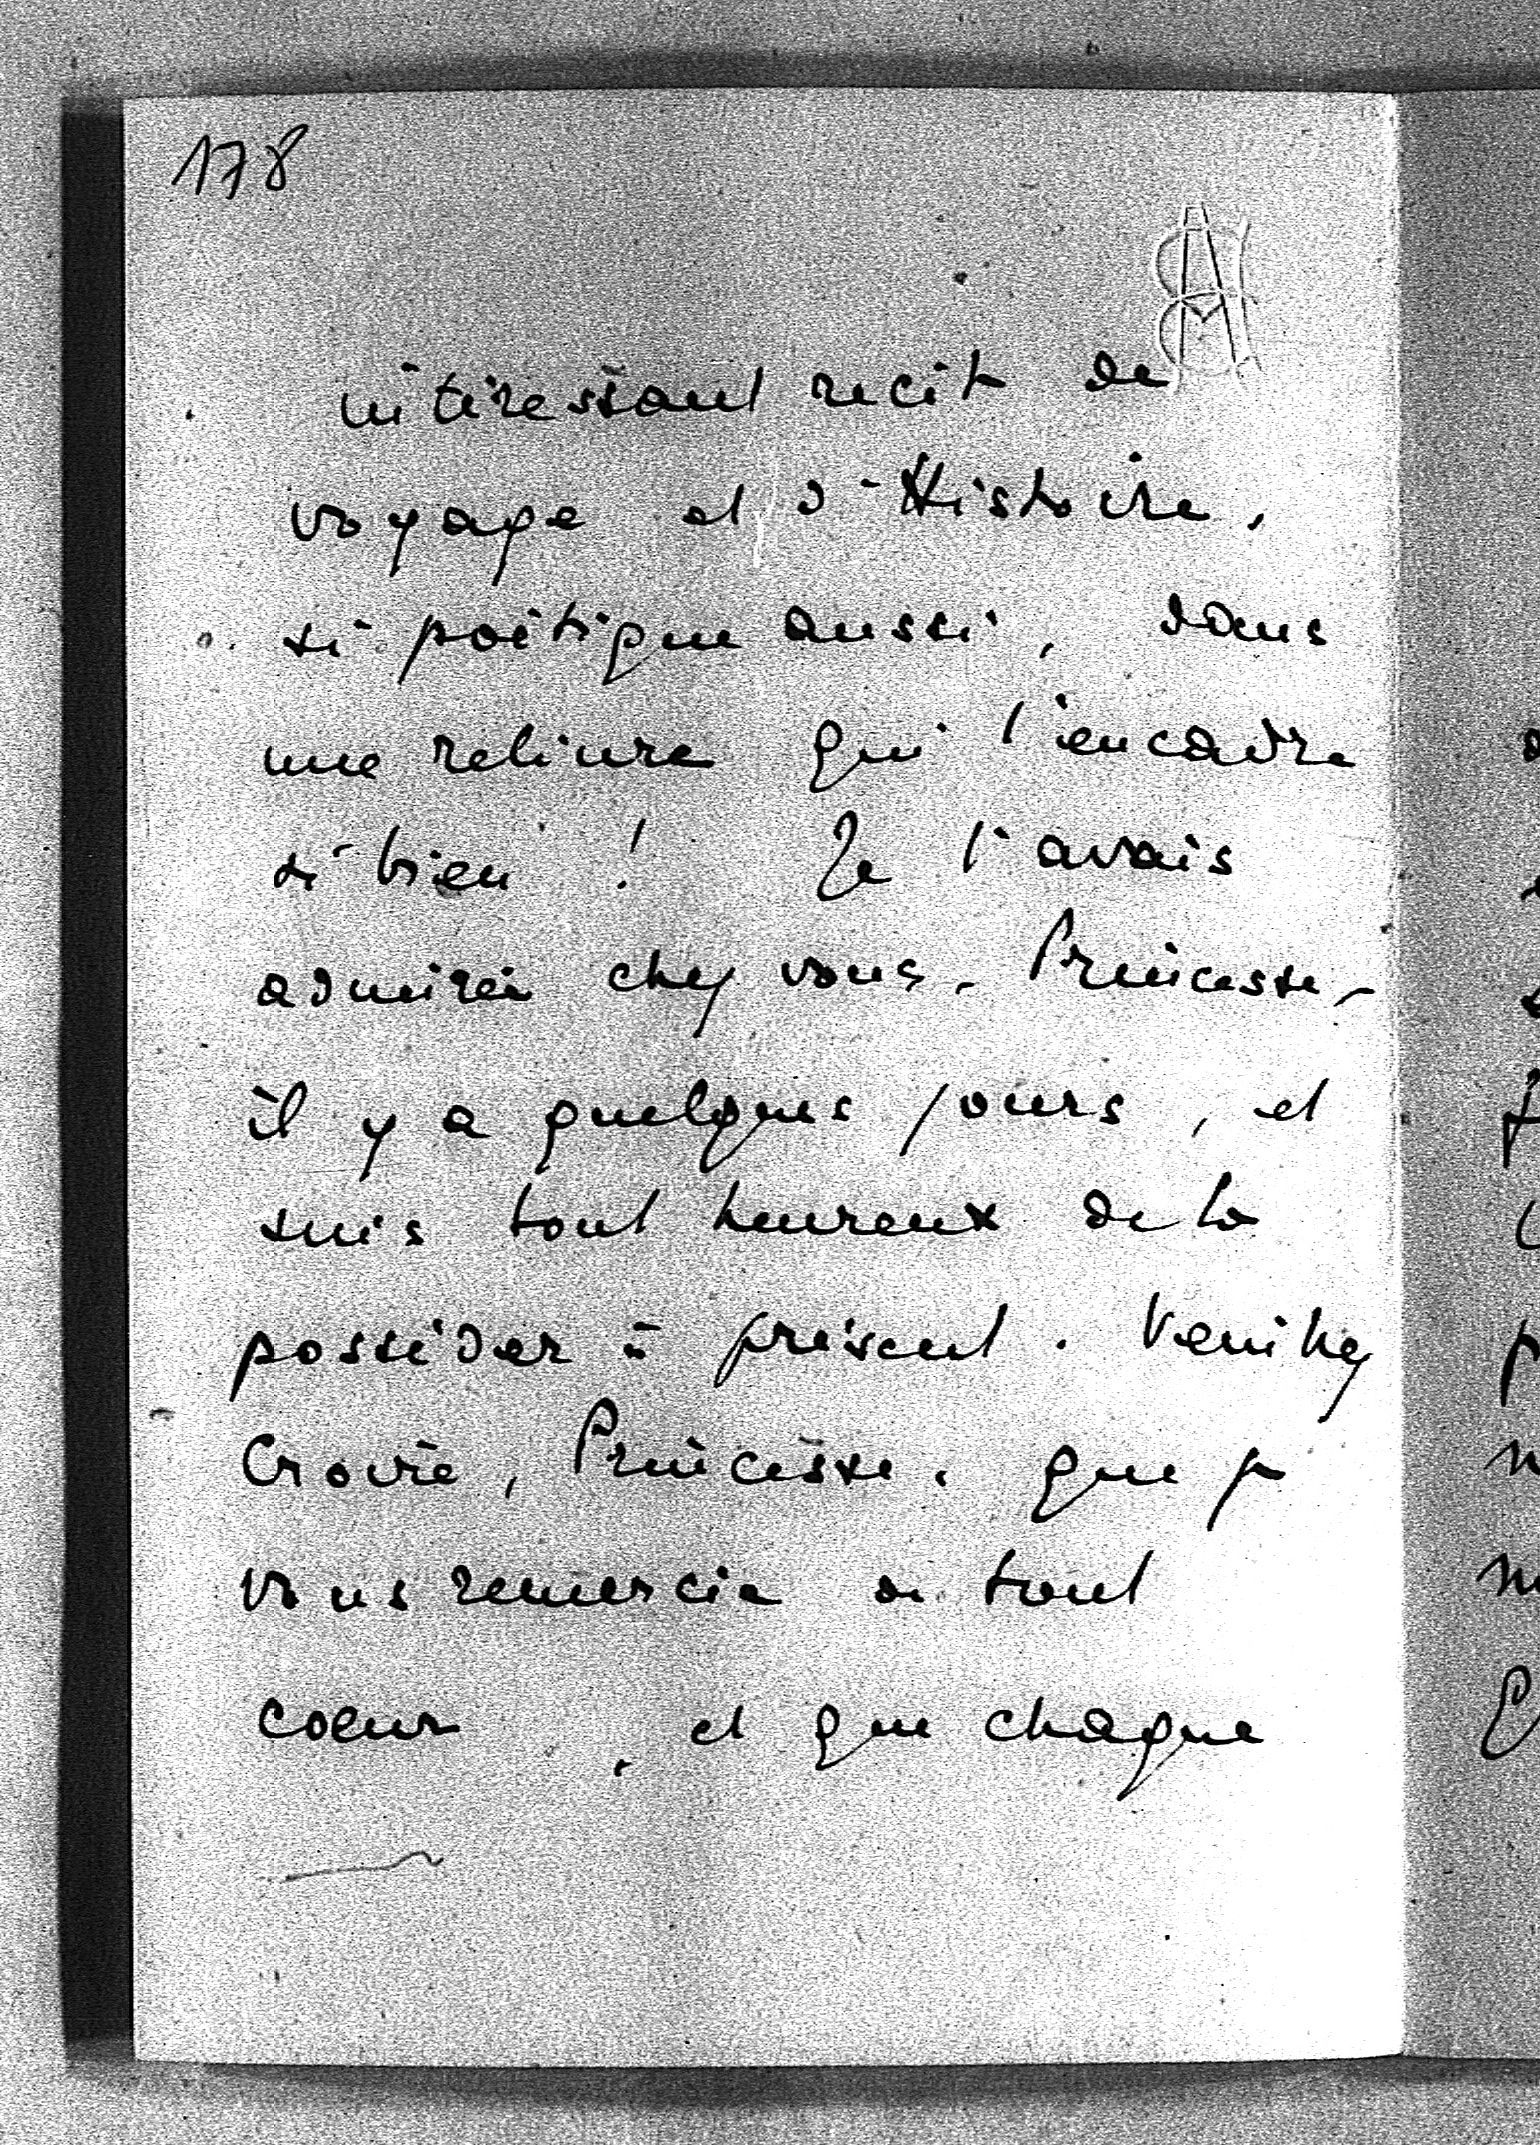 178
intéressant récit de
voyage et d'Histoire,
si poétique aussi, dans
une reliure qui l'encadre
si bien ! Je l'avais
admirée chez vous, Princesse,
il y a quelques jours, et
suis tout heureux de la
posséder à présent. Veuillez
croire, Princesse, que je
vous remercie de tout
coeur, et que chaque